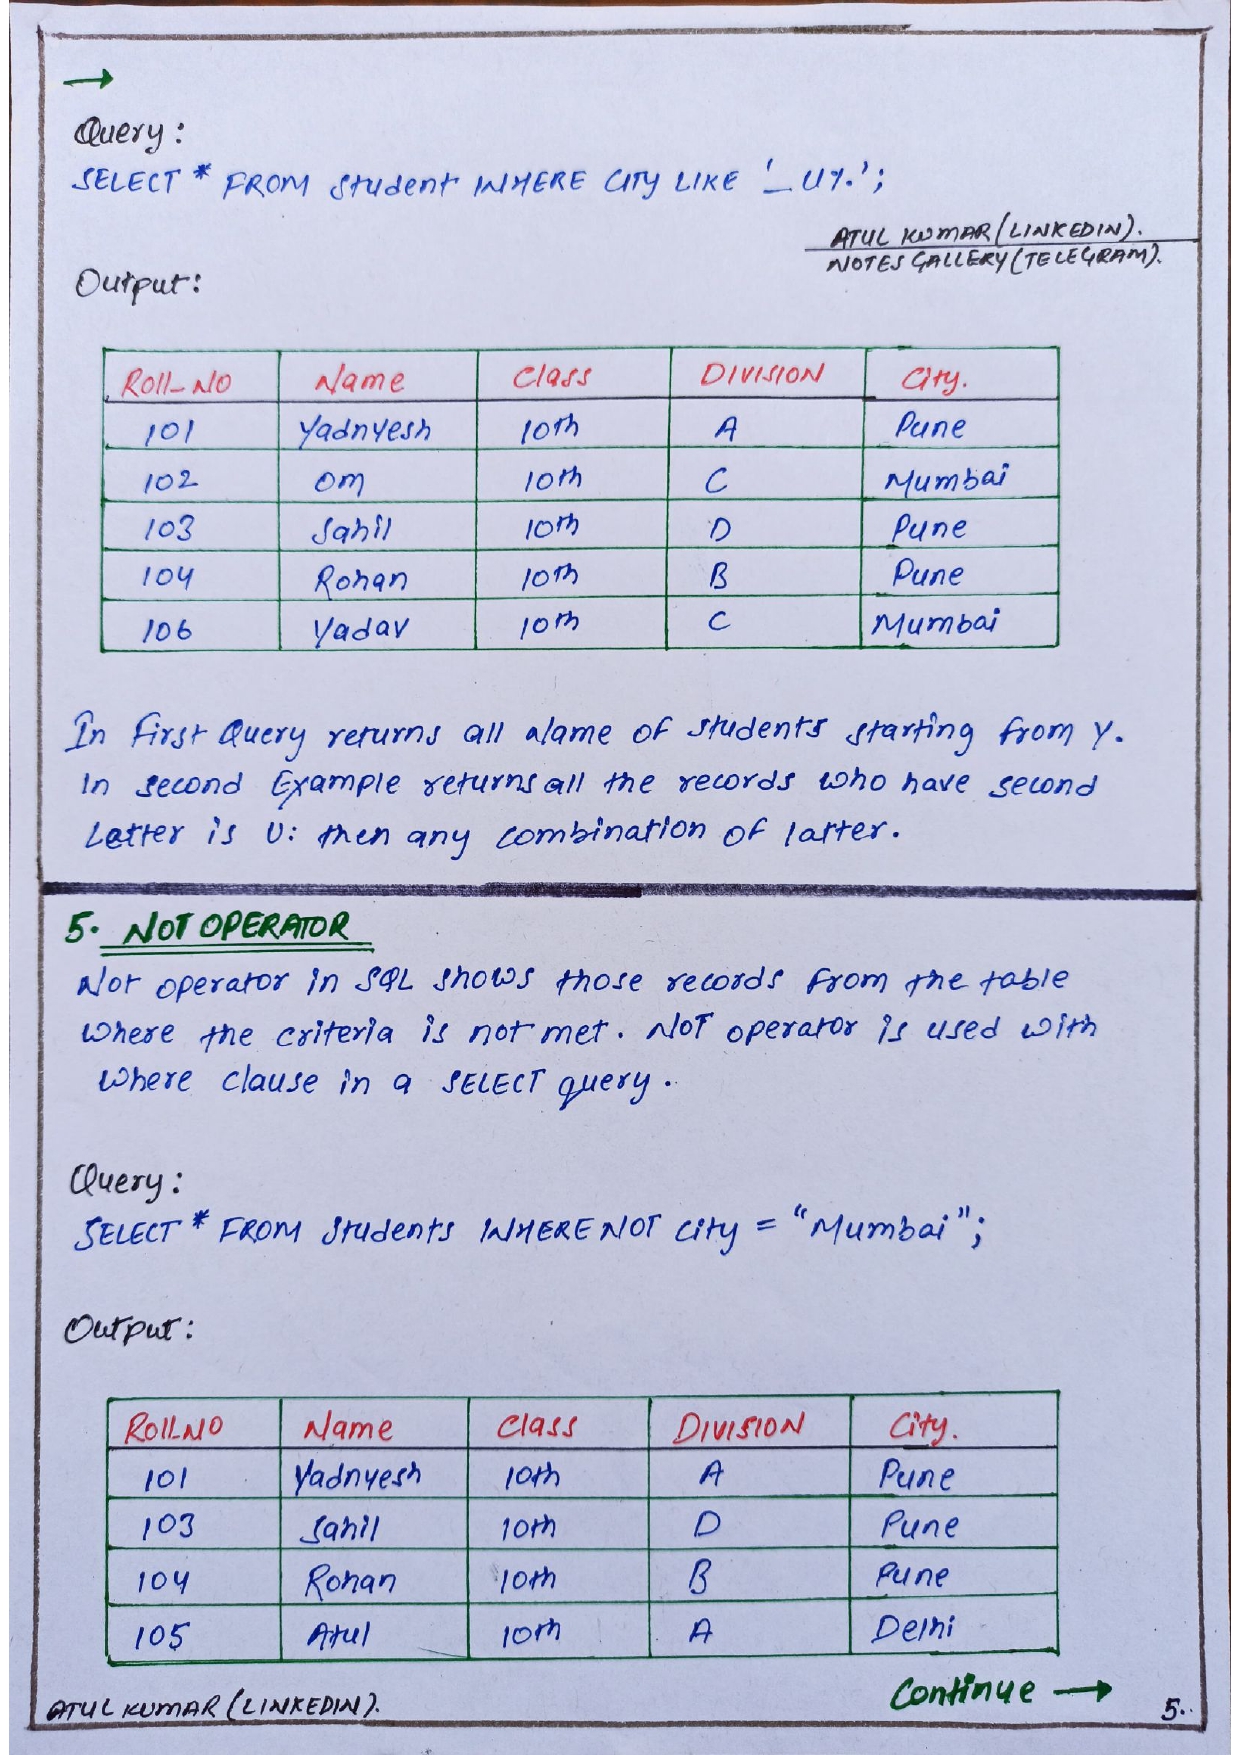 →
Query:
SELECT * FROM Student WHERE City LIKE '_U%';
ATUL KUMAR (LINKEDIN).
NOTES GALLERY (TELEGRAM).
Output:
Roll_No Name Class DIVISION City.
101 Yadnyesh 10th A Pune
102 Om 10th C Mumbai
103 Sahil 10th D Pune
104 Rohan 10th B Pune
106 Yadav 10th C Mumbai
In First Query returns all Name of students starting from Y.
In second Example returns all the records who have second
Letter is U: then any combination of latter.
5. NOT OPERATOR
Not operator in SQL shows those records from the table
where the criteria is not met. NOT operator is used with
where clause in a SELECT query.
Query:
SELECT * FROM Students WHERE NOT City = "Mumbai";
Output:
Roll_No Name Class DIVISION City.
101 Yadnyesh 10th A Pune
103 Sahil 10th D Pune
104 Rohan 10th B Pune
105 Atul 10th A Delhi
Continue →
ATUL KUMAR (LINKEDIN).
5..